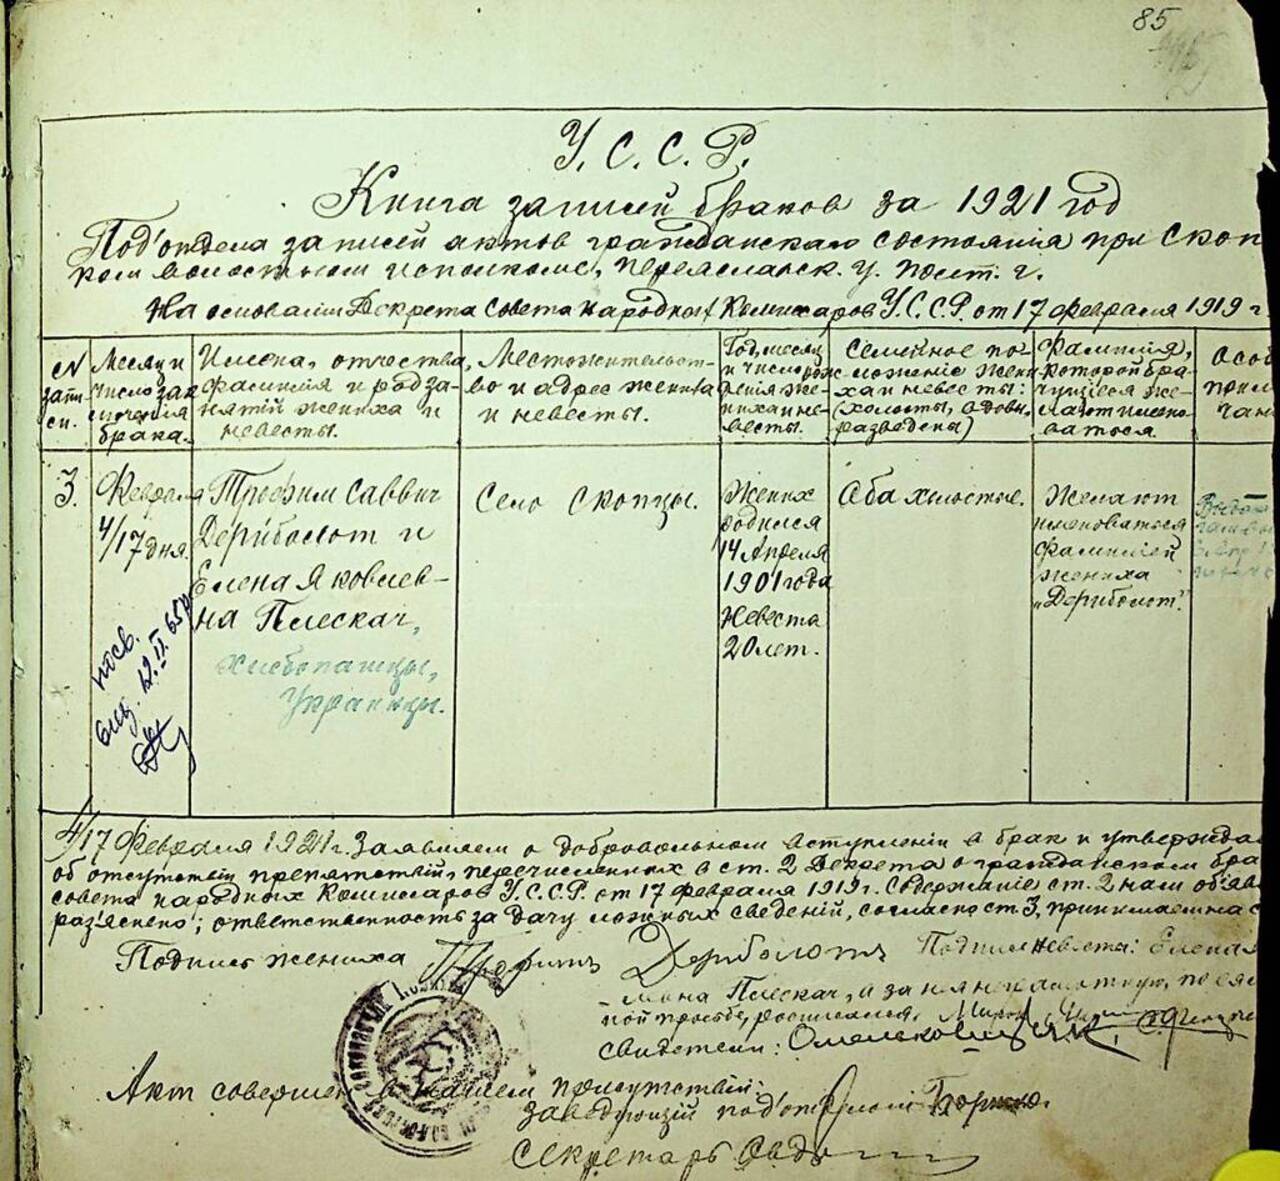 85
У. С. С. Р.
Книга записей браков за 1921 год
Под'отдела записей актов гражданскаго состоянія при Скоп
ком волостном исполкоме, Переяславск. у. Полт. г.
На основаніи Декрета Совета Народных Комиссаров У.С.С.Р. от 17 февраля 1919 г.
N записи.
Месяц и число заключения брака.
Имена, отчества, фамилия и род занятій жениха и невесты.
Местожительство и адрес жениха и невесты.
Год, месяц и число рождения жениха и невесты.
Семейное положеніе жениха и невесты: (холосты, вдовы, разведены)
Фамилия, которой брачущіеся желают именоваться.
Особ
прим
чан
3.
Февраля 4/17 дня.
Трофим Саввич
Дериболот и
Елена Яковлев-
на Плескач,
хлебопашцы,
Украинцы.
Село Скопцы.
Жених
родился
14 Апреля
1901 года
Невеста
20 лет.
Оба холостые.
Желают
именоваться
фамиліей
жениха
„Дериболот".
4/17 Февраля 1921 г. Заявляем о добровольном вступлении в брак и утвержда
об отсутствіи препятствій, перечисленных в ст. 2 Декрета о гражданском бра
совета народных Комиссаров У.С.С.Р. от 17 февраля 1919 г. Содержаніе ст. 2 нам об'яв
раз'яснено; ответственность за дачу ложных сведеній, согласно ст. 3, принимаем на с
Подпись жениха Трофимъ Дериболотъ Подпись невесты: Елена Я
Плескач, а за нея неграмотную, по ея
ной просьбе, росписался
свидетели:
Акт совершен в нашем присутствіи:
Заведующій под'отделом
Секретарь